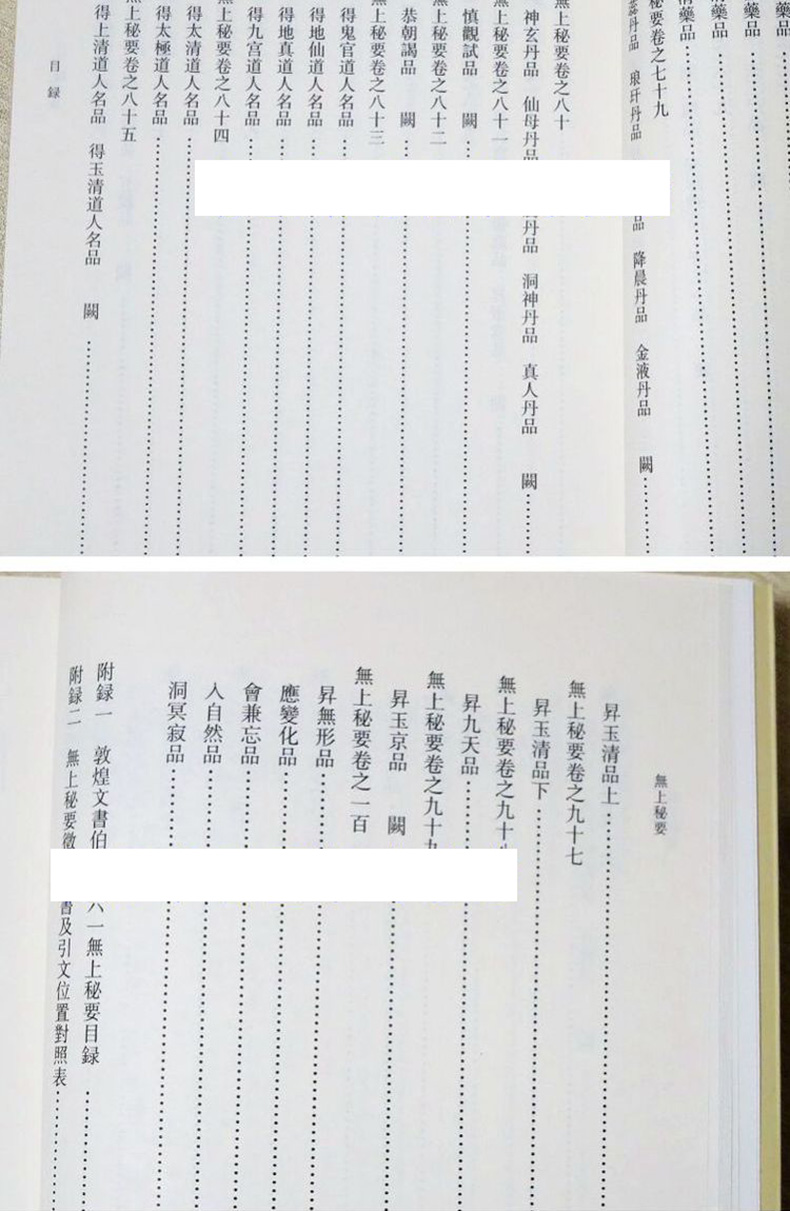 藥品
藥品
藥品
藥品
秘要卷之七十九
丹品 琅玕丹品 品 降晨丹品 金液丹品 闕
無上秘要卷之八十
神玄丹品 仙母丹品 丹品 洞神丹品 真人丹品 闕
無上秘要卷之八十一
慎觀試品 闕
無上秘要卷之八十二
恭朝謁品 闕
無上秘要卷之八十三
得鬼官道人名品
得地仙道人名品
得地真道人名品
得九宫道人名品
無上秘要卷之八十四
得太清道人名品
得太極道人名品
無上秘要卷之八十五
得上清道人名品 得玉清道人名品 闕
目録
無上秘要
昇玉清品上
無上秘要卷之九十七
昇玉清品下
無上秘要卷之九十八
昇九天品
無上秘要卷之九十九
昇玉京品 闕
無上秘要卷之一百
昇無形品
應變化品
會兼忘品
入自然品
洞冥寂品
附録一 敦煌文書伯 六一無上秘要目録
附録二 無上秘要徵 書及引文位置對照表